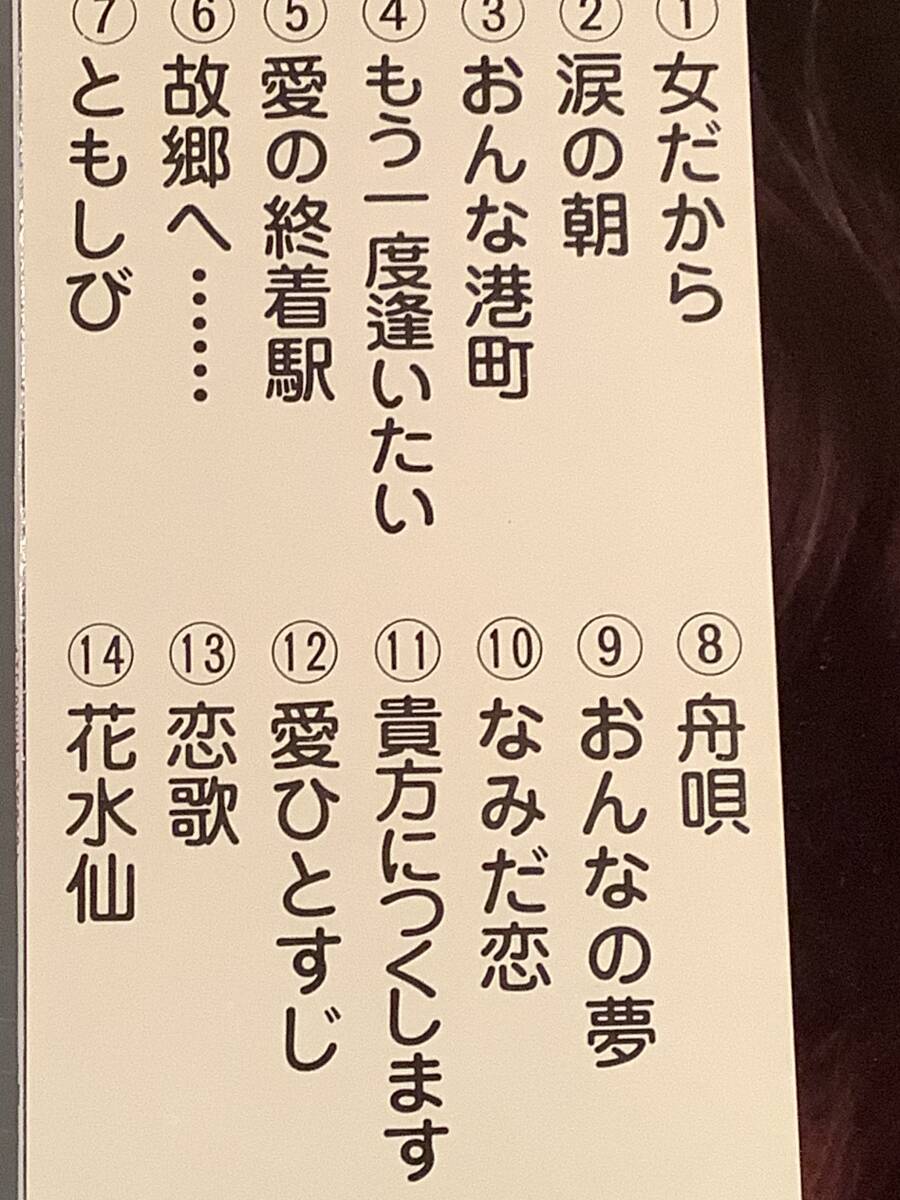 ①女だから
②涙の朝
③おんな港町
④もう一度逢いたい
⑤愛の終着駅
⑥故郷へ……
⑦ともしび
⑧舟唄
⑨おんなの夢
⑩なみだ恋
⑪貴方につくします
⑫愛ひとすじ
⑬恋歌
⑭花水仙